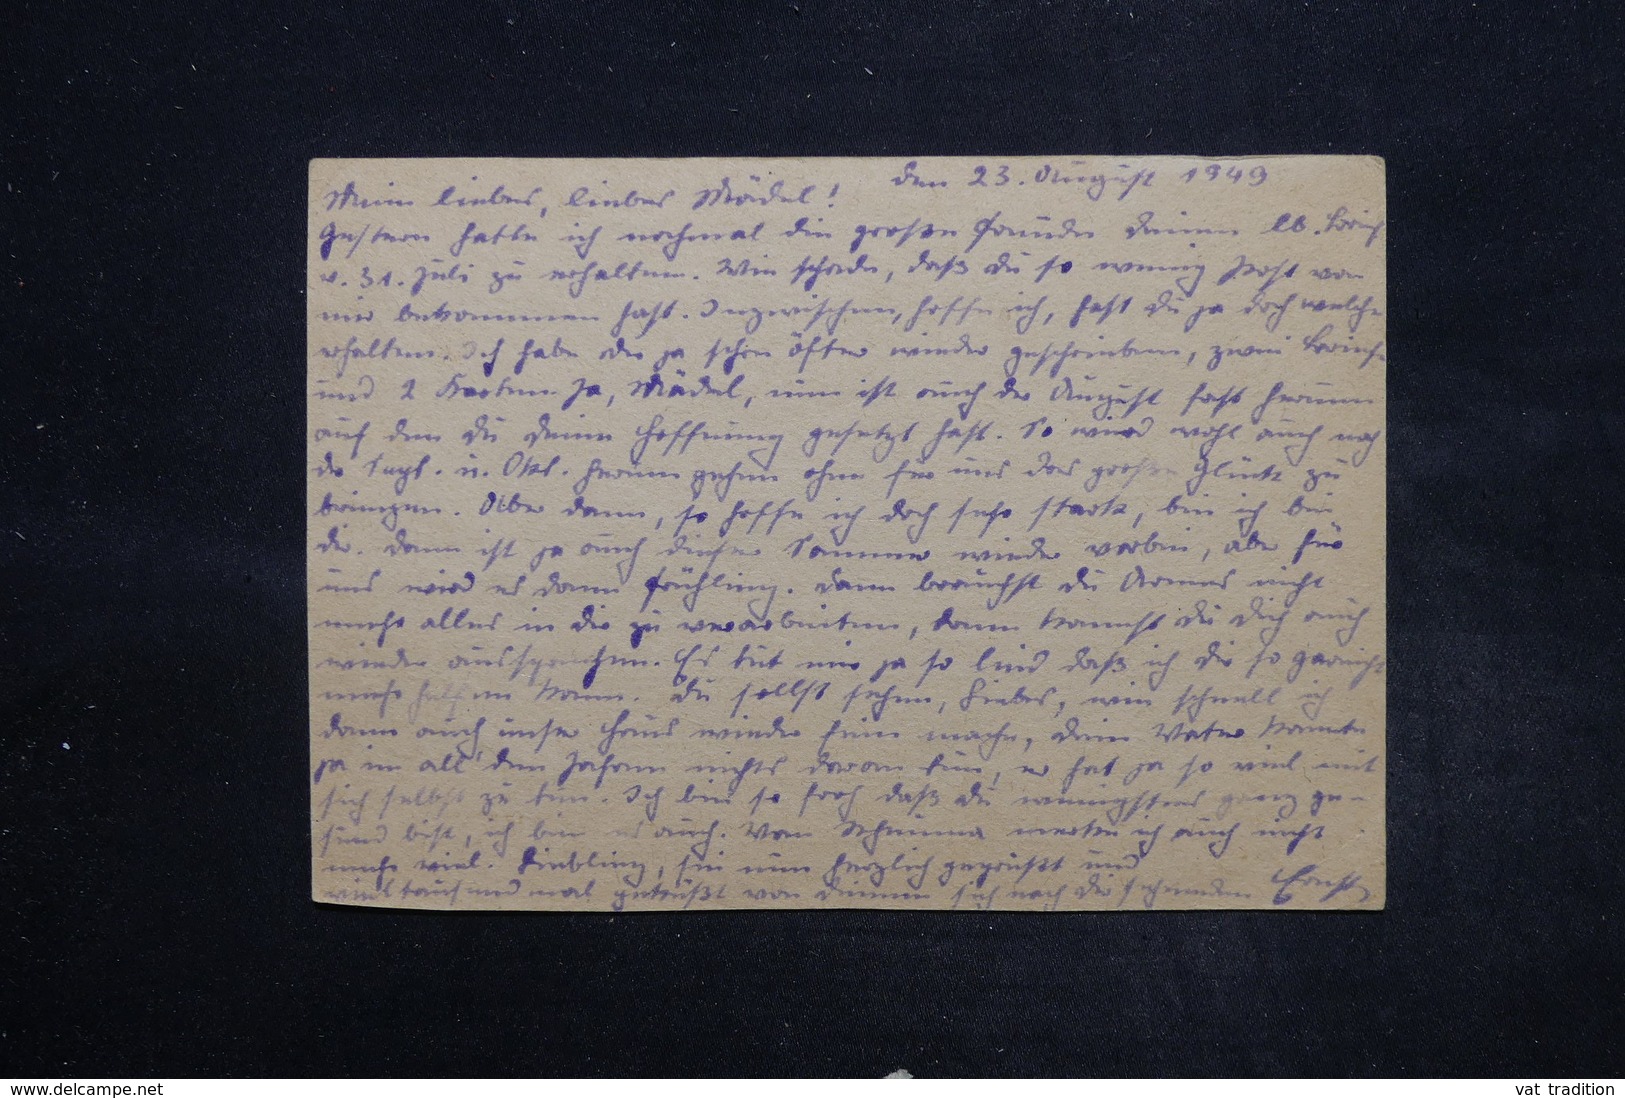 den 23. August 1949
Mein liebes, liebes Mädel!
Gestern hatte ich nochmal die große Freude Deinen lb. Brief
v. 31. Juli zu erhalten. Wie schade, daß Du so wenig Post von
mir bekommen hast. Inzwischen, hoffe ich, hast Du ja doch welche
erhalten. Ich habe Dir ja schon öfter wieder geschrieben, zwei Briefe
und 2 Karten. Ja, Mädel, nun ist auch der August fast herum
auf den Du Deine Hoffnung gesetzt hast. So wird wohl auch noch
der Sept. u. Okt. herum gehen ohne für uns das große Glück zu
bringen. Aber dann, so hoffe ich doch sehr stark, bin ich bei
Dir. Dann ist ja auch dieser Sommer wieder vorbei, aber für
uns wird es dann Frühling. Dann brauchst Du Armes nicht
mehr alles in Dir zu verarbeiten, dann kannst Du Dich auch
wieder aussprechen. Es tut mir ja so leid daß ich Dir so garnicht
mehr helfen kann. Du sollst sehen, Liebes, wie schnell ich
dann auch unser Haus wieder fein mache, Dein Vater konnte
ja in all' den Jahren nichts daran tun, er hat ja so viel mit
sich selbst zu tun. Ich bin so froh daß Du wenigstens ganz ge-
sund bist, ich bin es auch. Vom Rheuma merke ich auch nicht
mehr viel. Liebling, sei nun herzlich gegrüßt und
vieltausend mal geküßt von Deinem sich nach Dir sehnenden Ernst
www.delcampe.net
vat tradition